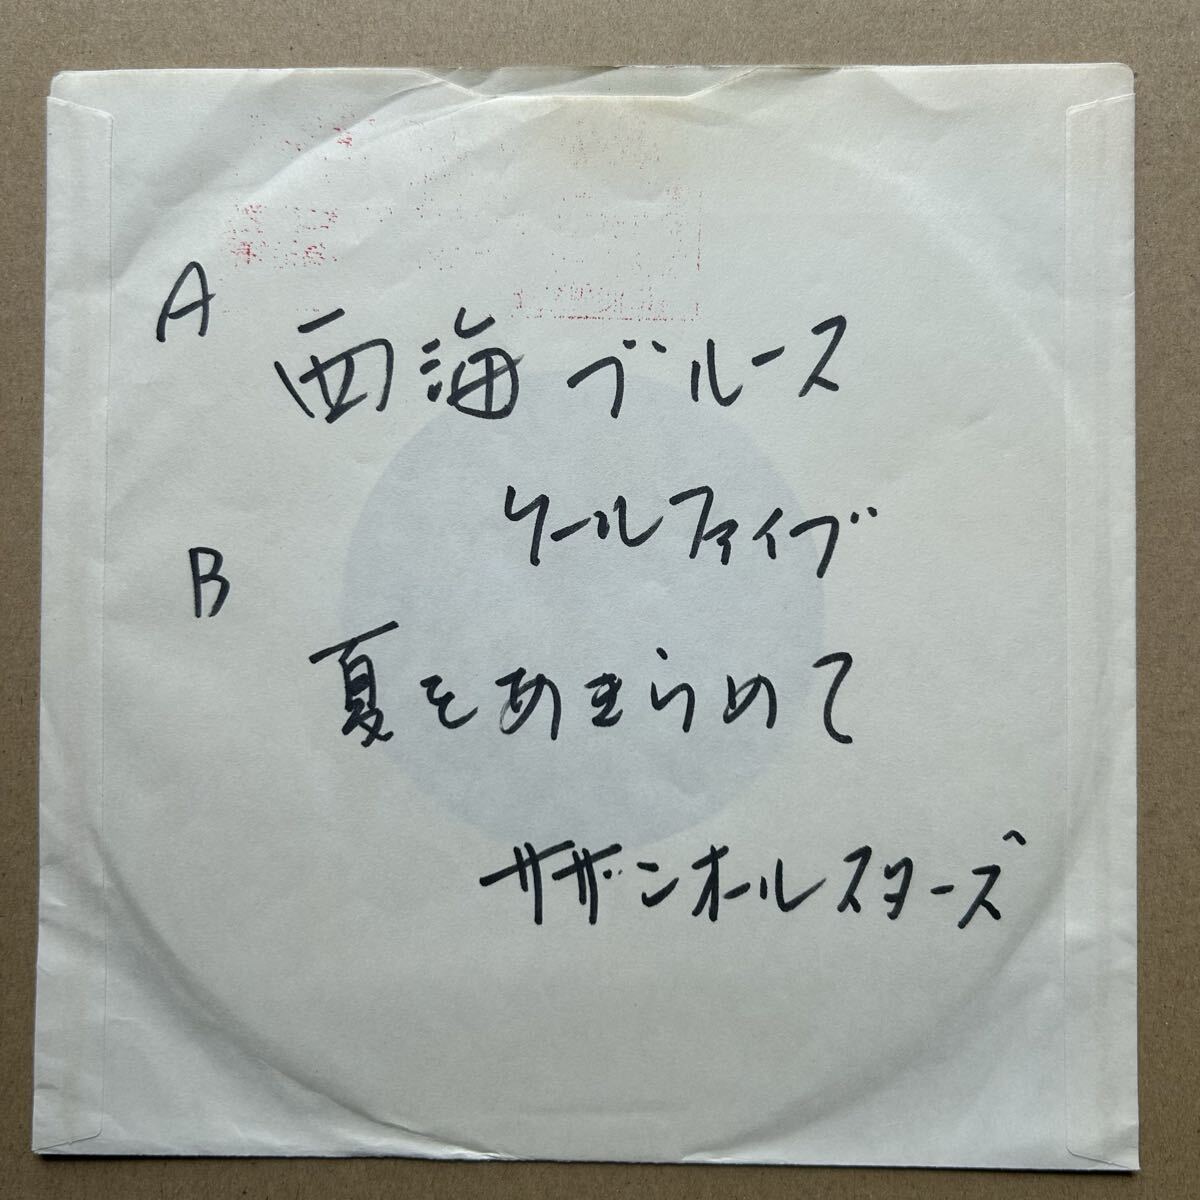 A
西海ブルース
クールファイブ
B
夏をあきらめて
サザンオールスターズ